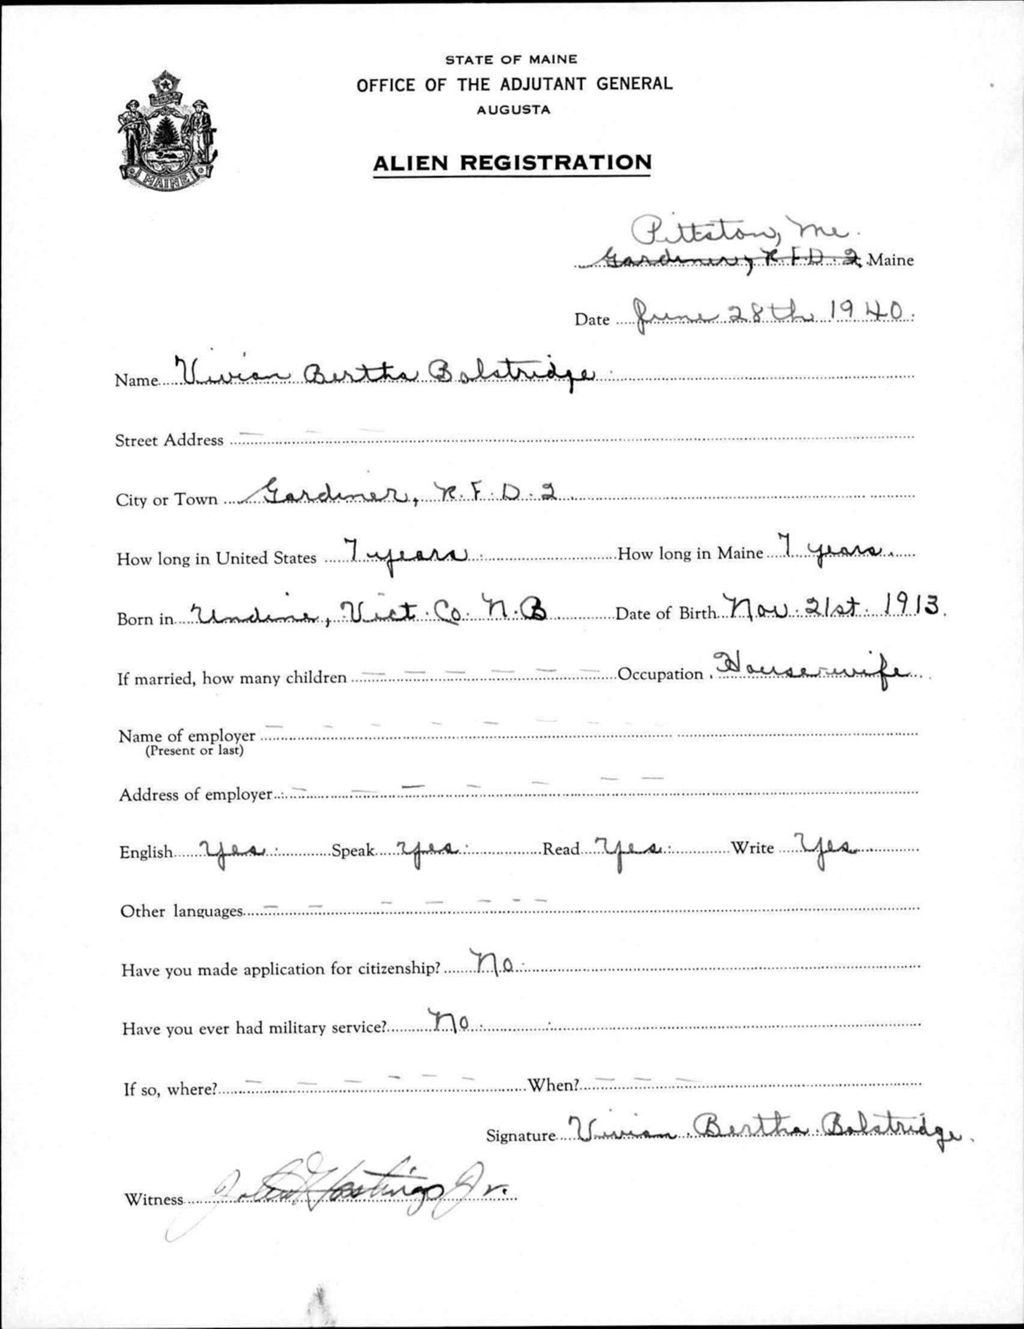 STATE OF MAINE
OFFICE OF THE ADJUTANT GENERAL
AUGUSTA
MAINE
ALIEN REGISTRATION
Pittston, Me.
Gardiner, R.F.D. 2 Maine
Date June 28th 1940.
Name Vivian Bertha Bolstridge
Street Address — — —
City or Town Gardiner, R.F.D. 2
How long in United States 7 years How long in Maine 7 years
Born in Undine, Vict. Co. N.B Date of Birth Nov. 21st. 1913.
If married, how many children — — — — — — Occupation Housewife
Name of employer — — — — — — —
(Present or last)
Address of employer — — — — — — —
English Yes. Speak Yes. Read Yes. Write Yes
Other languages — — — — — — —
Have you made application for citizenship? No.
Have you ever had military service? No.
If so, where? — — — — — — When? — — —
Signature Vivian Bertha Bolstridge.
Witness Hastings Jr.